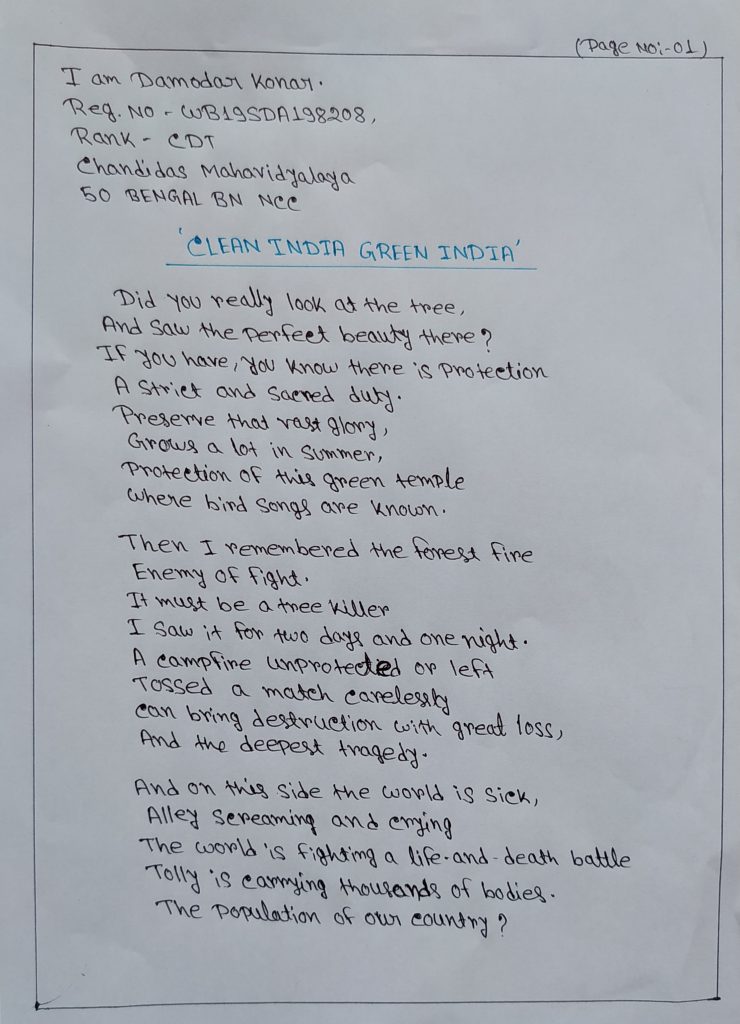 (Page No:-01)
I am Damodar Konar.
Reg. No - WB19SDA198208,
Rank - CDT
Chandidas Mahavidyalaya
50 BENGAL BN NCC
'CLEAN INDIA GREEN INDIA'
Did you really look at the tree,
And saw the perfect beauty there?
If you have, you know there is protection
A strict and sacred duty.
Preserve that vast glory,
Grows a lot in summer,
Protection of this green temple
where bird songs are known.
Then I remembered the forest fire
Enemy of fight.
It must be a tree killer
I saw it for two days and one night.
A campfire unprotected or left
Tossed a match carelessly
can bring destruction with great loss,
And the deepest tragedy.
And on this side the world is sick,
Alley screaming and crying
The world is fighting a life-and-death battle
Tolly is carrying thousands of bodies.
The population of our country?